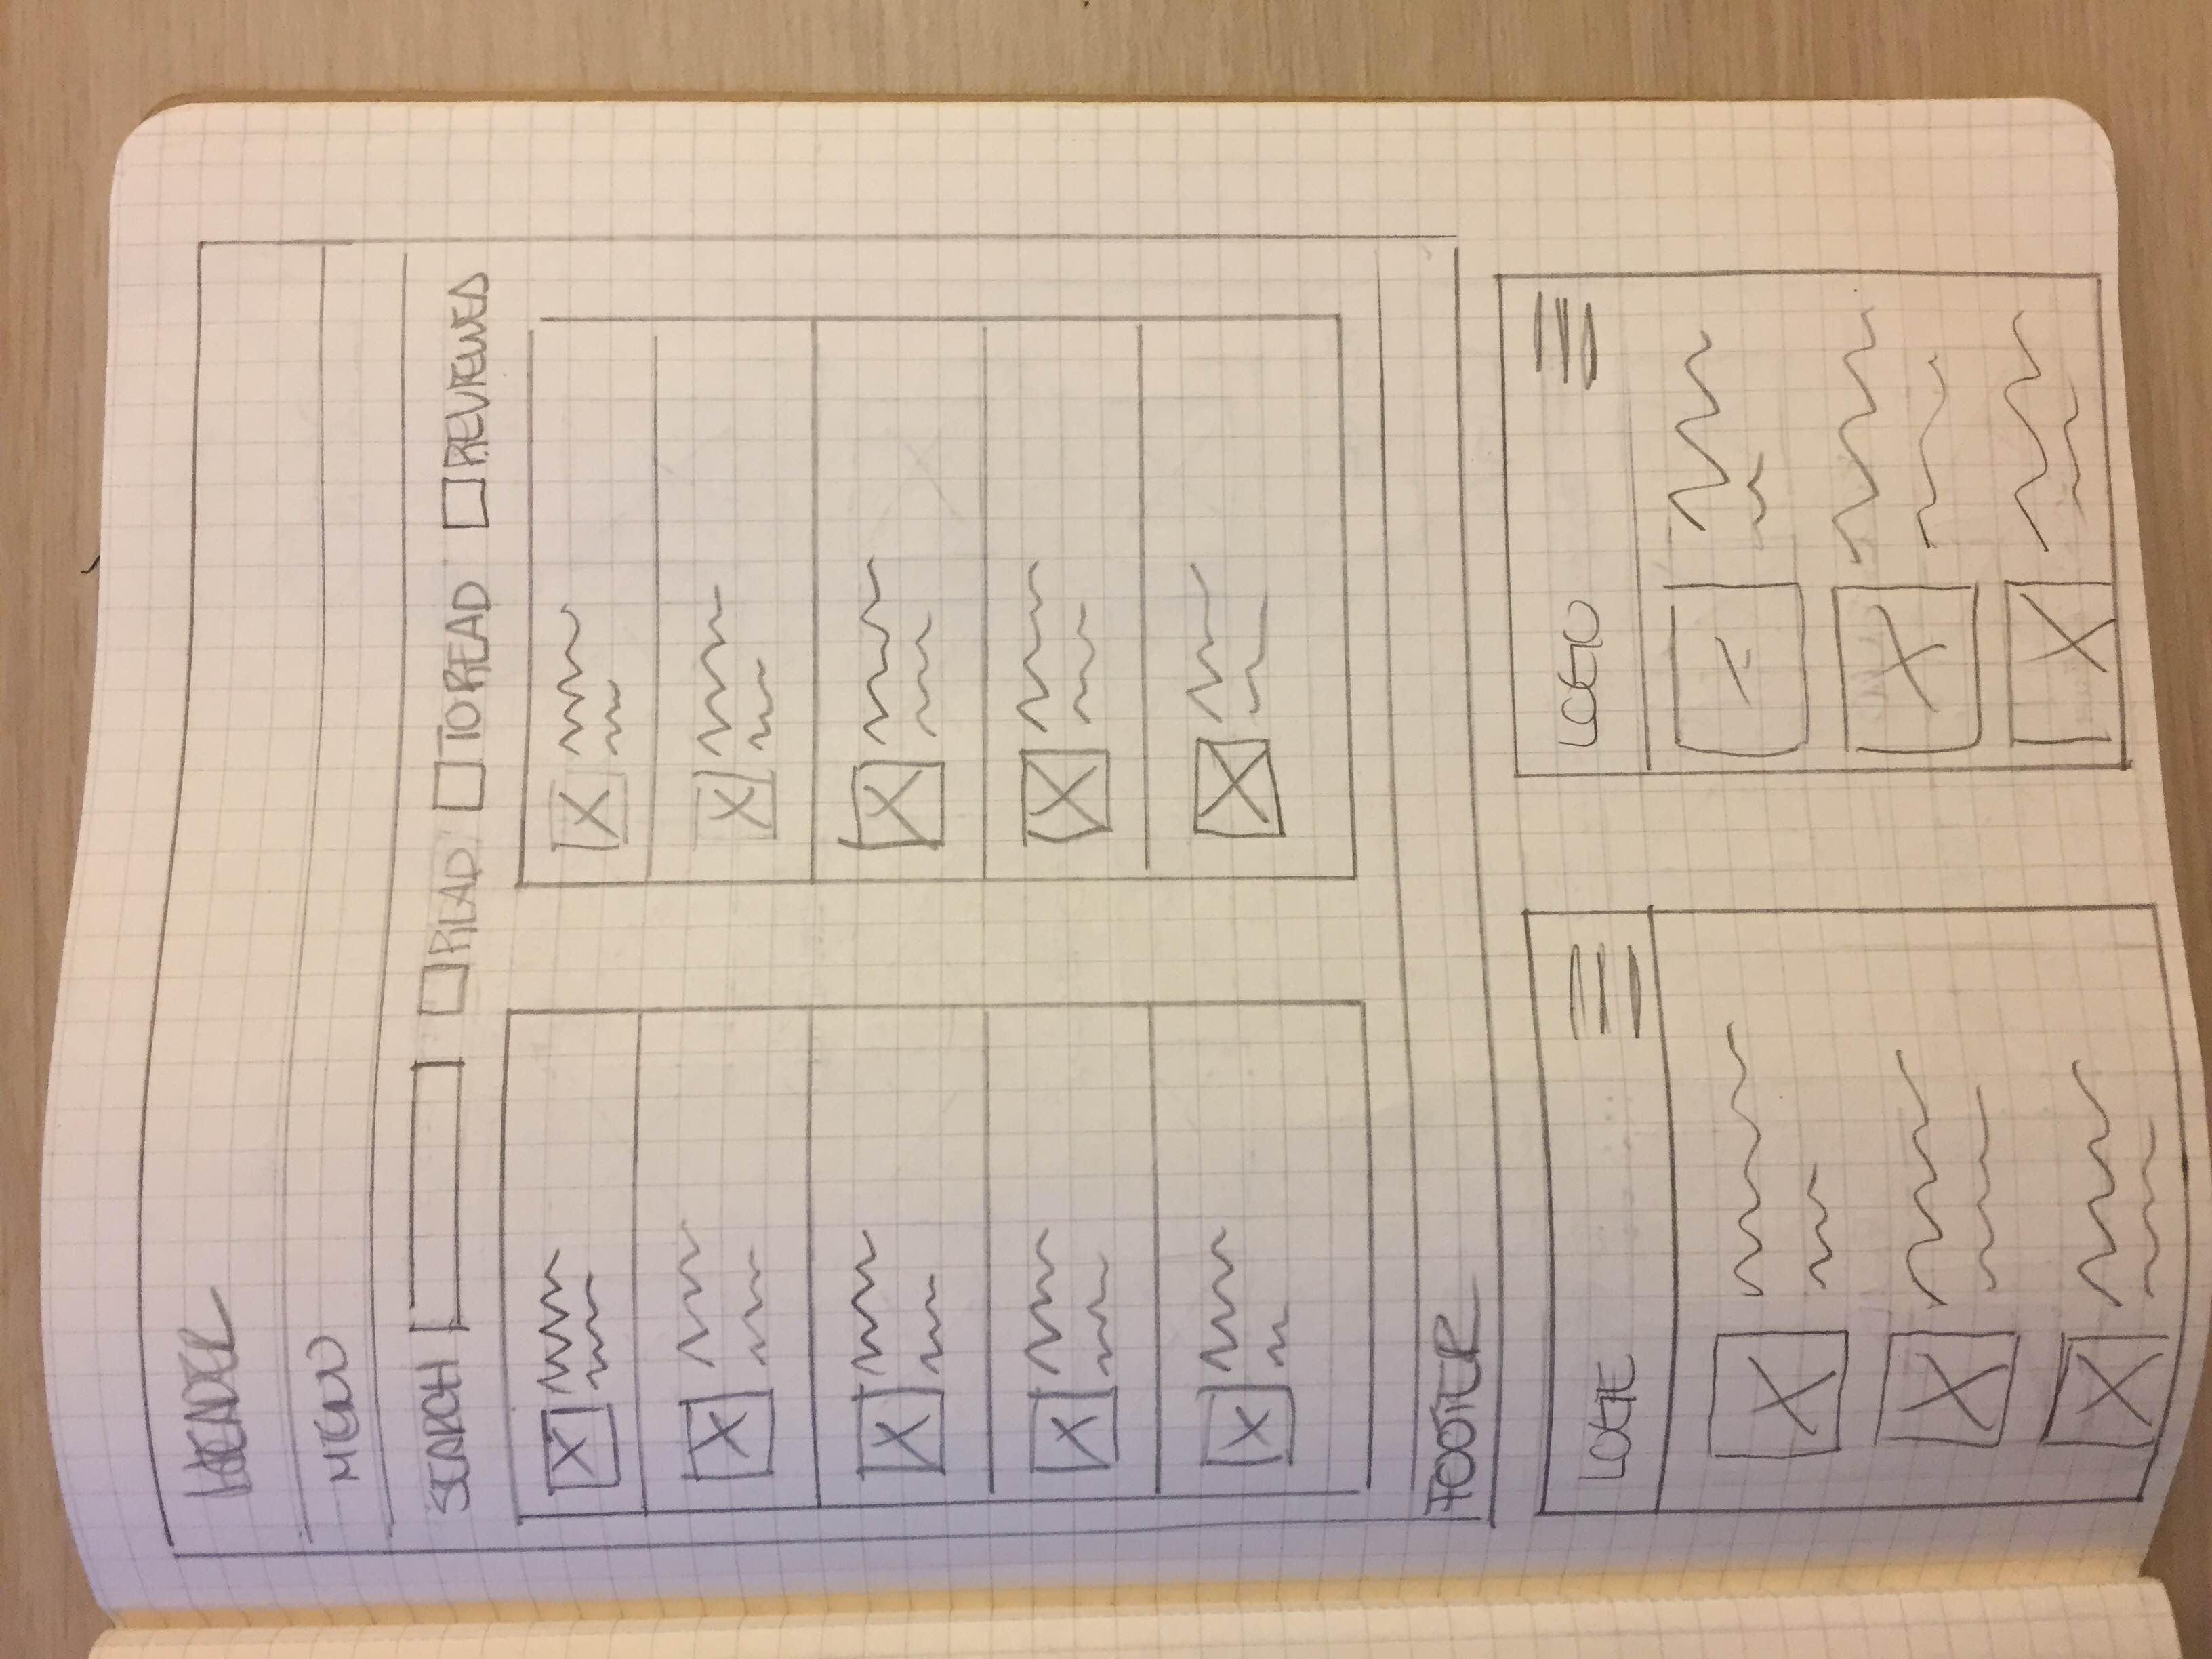 HEADER
MENU
SEARCH READ TO READ REVIEWED
FOOTER
LOGO LOGO